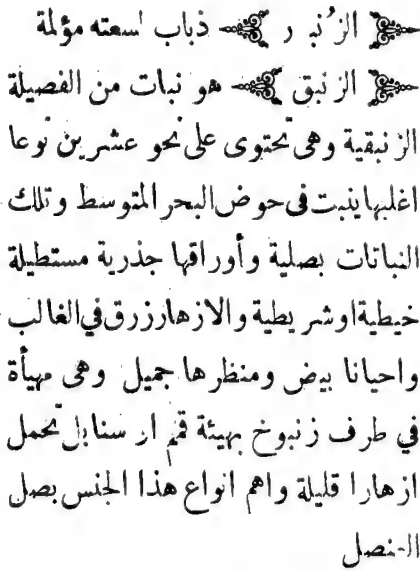 ﴿ الزُنبور ﴾ ذباب لسعته مؤلمة
﴿ الزنبق ﴾ هو نبات من الفصيلة
الزنبقية وهى تحتوى على نحو عشرين نوعا
اغلبها ينبت فى حوض البحر المتوسط وتلك
النباتات بصلية وأوراقها جذرية مستطيلة
خيطية او شريطية والازهار زرق في الغالب
واحيانا بيض ومنظرها جميل وهى مهيأة
في طرف زنبوخ بهيئة قمم او سنابل تحمل
ازهارا قليلة واهم انواع هذا الجنس بصل
العنصل